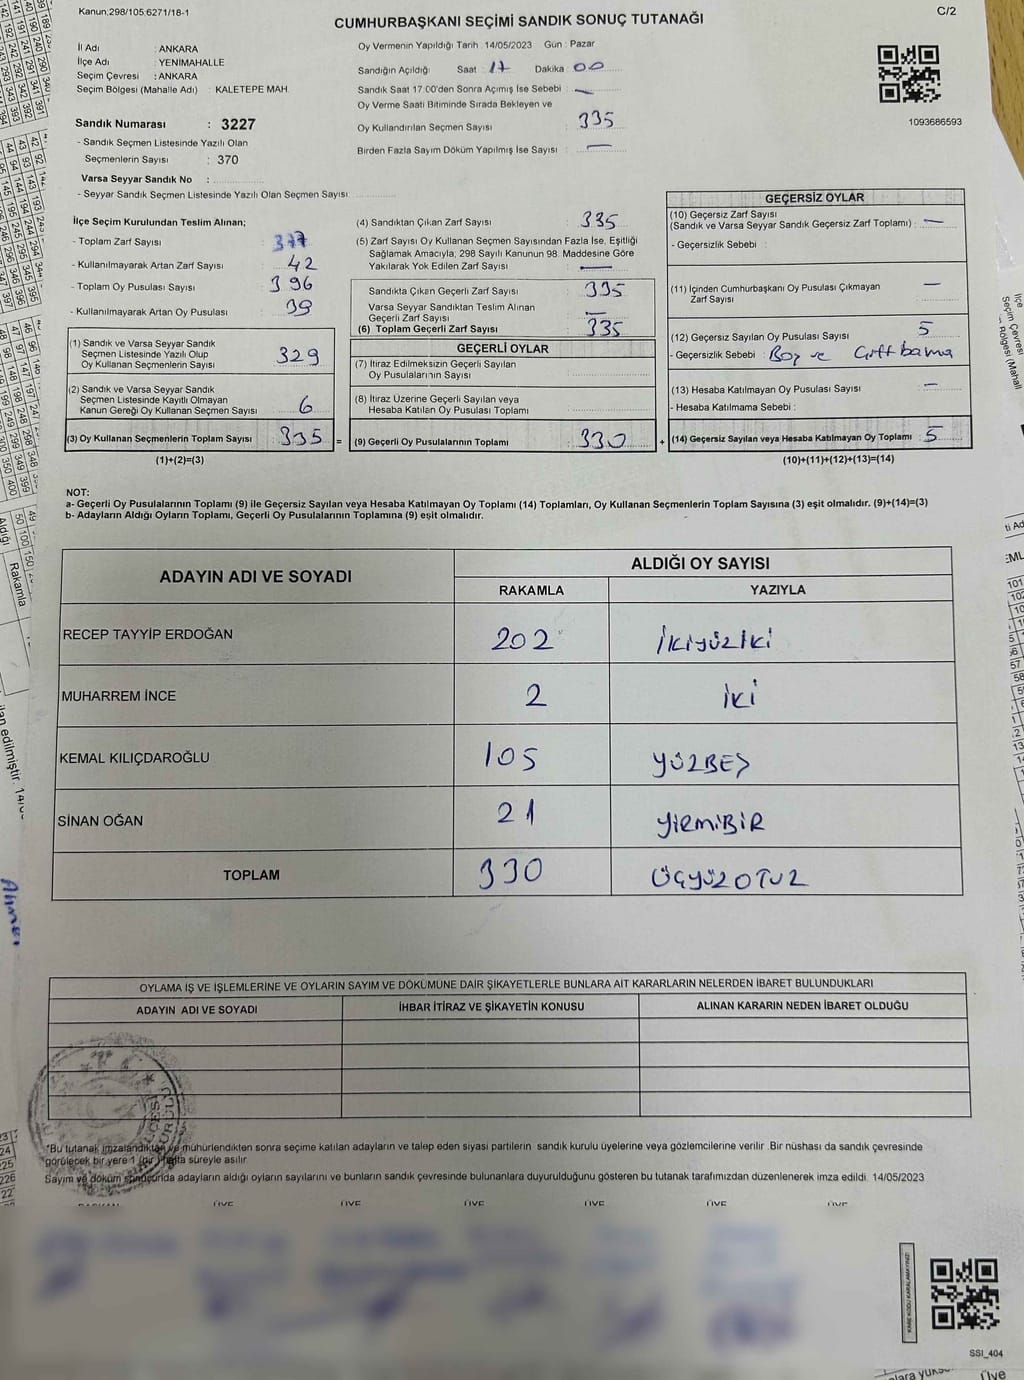 Kanun.298/105.6271/18-1
CUMHURBAŞKANI SEÇİMİ SANDIK SONUÇ TUTANAĞI
C/2
İl Adı : ANKARA
İlçe Adı : YENİMAHALLE
Seçim Çevresi : ANKARA
Seçim Bölgesi (Mahalle Adı) : KALETEPE MAH.
Sandık Numarası : 3227
- Sandık Seçmen Listesinde Yazılı Olan
Seçmenlerin Sayısı : 370
Varsa Seyyar Sandık No :
- Seyyar Sandık Seçmen Listesinde Yazılı Olan Seçmen Sayısı:
Oy Vermenin Yapıldığı Tarih : 14/05/2023 Gün : Pazar
Sandığın Açıldığı Saat : 17 Dakika : 00
Sandık Saat 17.00'den Sonra Açımış İse Sebebi : —
Oy Verme Saati Bitiminde Sırada Bekleyen ve
Oy Kullandırılan Seçmen Sayısı : 335
Birden Fazla Sayım Döküm Yapılmış İse Sayısı : —
1093686593
İlçe Seçim Kurulundan Teslim Alınan;
- Toplam Zarf Sayısı : 377
- Kullanılmayarak Artan Zarf Sayısı : 42
- Toplam Oy Pusulası Sayısı : 396
- Kullanılmayarak Artan Oy Pusulası : 39
(1) Sandık ve Varsa Seyyar Sandık
Seçmen Listesinde Yazılı Olup
Oy Kullanan Seçmenlerin Sayısı : 329
(2) Sandık ve Varsa Seyyar Sandık
Seçmen Listesinde Kayıtlı Olmayan
Kanun Gereği Oy Kullanan Seçmen Sayısı : 6
(3) Oy Kullanan Seçmenlerin Toplam Sayısı : 335 =
(1)+(2)=(3)
(4) Sandıktan Çıkan Zarf Sayısı : 335
(5) Zarf Sayısı Oy Kullanan Seçmen Sayısından Fazla İse, Eşitliği
Sağlamak Amacıyla; 298 Sayılı Kanunun 98. Maddesine Göre
Yakılarak Yok Edilen Zarf Sayısı : —
Sandıkta Çıkan Geçerli Zarf Sayısı : 335
Varsa Seyyar Sandıktan Teslim Alınan
Geçerli Zarf Sayısı : —
(6) Toplam Geçerli Zarf Sayısı : 335
GEÇERLİ OYLAR
(7) İtiraz Edilmeksizin Geçerli Sayılan
Oy Pusulalarının Sayısı :
(8) İtiraz Üzerine Geçerli Sayılan veya
Hesaba Katılan Oy Pusulası Toplamı :
(9) Geçerli Oy Pusulalarının Toplamı : 330 +
GEÇERSİZ OYLAR
(10) Geçersiz Zarf Sayısı
(Sandık ve Varsa Seyyar Sandık Geçersiz Zarf Toplamı) : —
- Geçersizlik Sebebi :
(11) İçinden Cumhurbaşkanı Oy Pusulası Çıkmayan
Zarf Sayısı : —
(12) Geçersiz Sayılan Oy Pusulası Sayısı : 5
- Geçersizlik Sebebi : Boş ve Çift basma
(13) Hesaba Katılmayan Oy Pusulası Sayısı : —
- Hesaba Katılmama Sebebi :
(14) Geçersiz Sayılan veya Hesaba Katılmayan Oy Toplamı : 5
(10)+(11)+(12)+(13)=(14)
NOT:
a- Geçerli Oy Pusulalarının Toplamı (9) ile Geçersiz Sayılan veya Hesaba Katılmayan Oy Toplamı (14) Toplamları, Oy Kullanan Seçmenlerin Toplam Sayısına (3) eşit olmalıdır. (9)+(14)=(3)
b- Adayların Aldığı Oyların Toplamı, Geçerli Oy Pusulalarının Toplamına (9) eşit olmalıdır.
ADAYIN ADI VE SOYADI
ALDIĞI OY SAYISI
RAKAMLA YAZIYLA
RECEP TAYYİP ERDOĞAN 202 İKİYÜZİKİ
MUHARREM İNCE 2 İKİ
KEMAL KILIÇDAROĞLU 105 YÜZBEŞ
SİNAN OĞAN 21 YİRMİBİR
TOPLAM 330 ÜÇYÜZOTUZ
OYLAMA İŞ VE İŞLEMLERİNE VE OYLARIN SAYIM VE DÖKÜMÜNE DAİR ŞİKAYETLERLE BUNLARA AİT KARARLARIN NELERDEN İBARET BULUNDUKLARI
ADAYIN ADI VE SOYADI İHBAR İTİRAZ VE ŞİKAYETİN KONUSU ALINAN KARARIN NEDEN İBARET OLDUĞU
*Bu tutanak imzalandıktan ve mühürlendikten sonra seçime katılan adayların ve talep eden siyasi partilerin sandık kurulu üyelerine veya gözlemcilerine verilir. Bir nüshası da sandık çevresinde
görülecek bir yere 1 (bir) hafta süreyle asılır.
Sayım ve döküm sonucunda adayların aldığı oyların sayılarını ve bunların sandık çevresinde bulunanlara duyurulduğunu gösteren bu tutanak tarafımızdan düzenlenerek imza edildi. 14/05/2023
BAŞKAN ÜYE ÜYE ÜYE ÜYE ÜYE ÜYE
KARE KODU KARALAMAYINIZ!
SSI_404